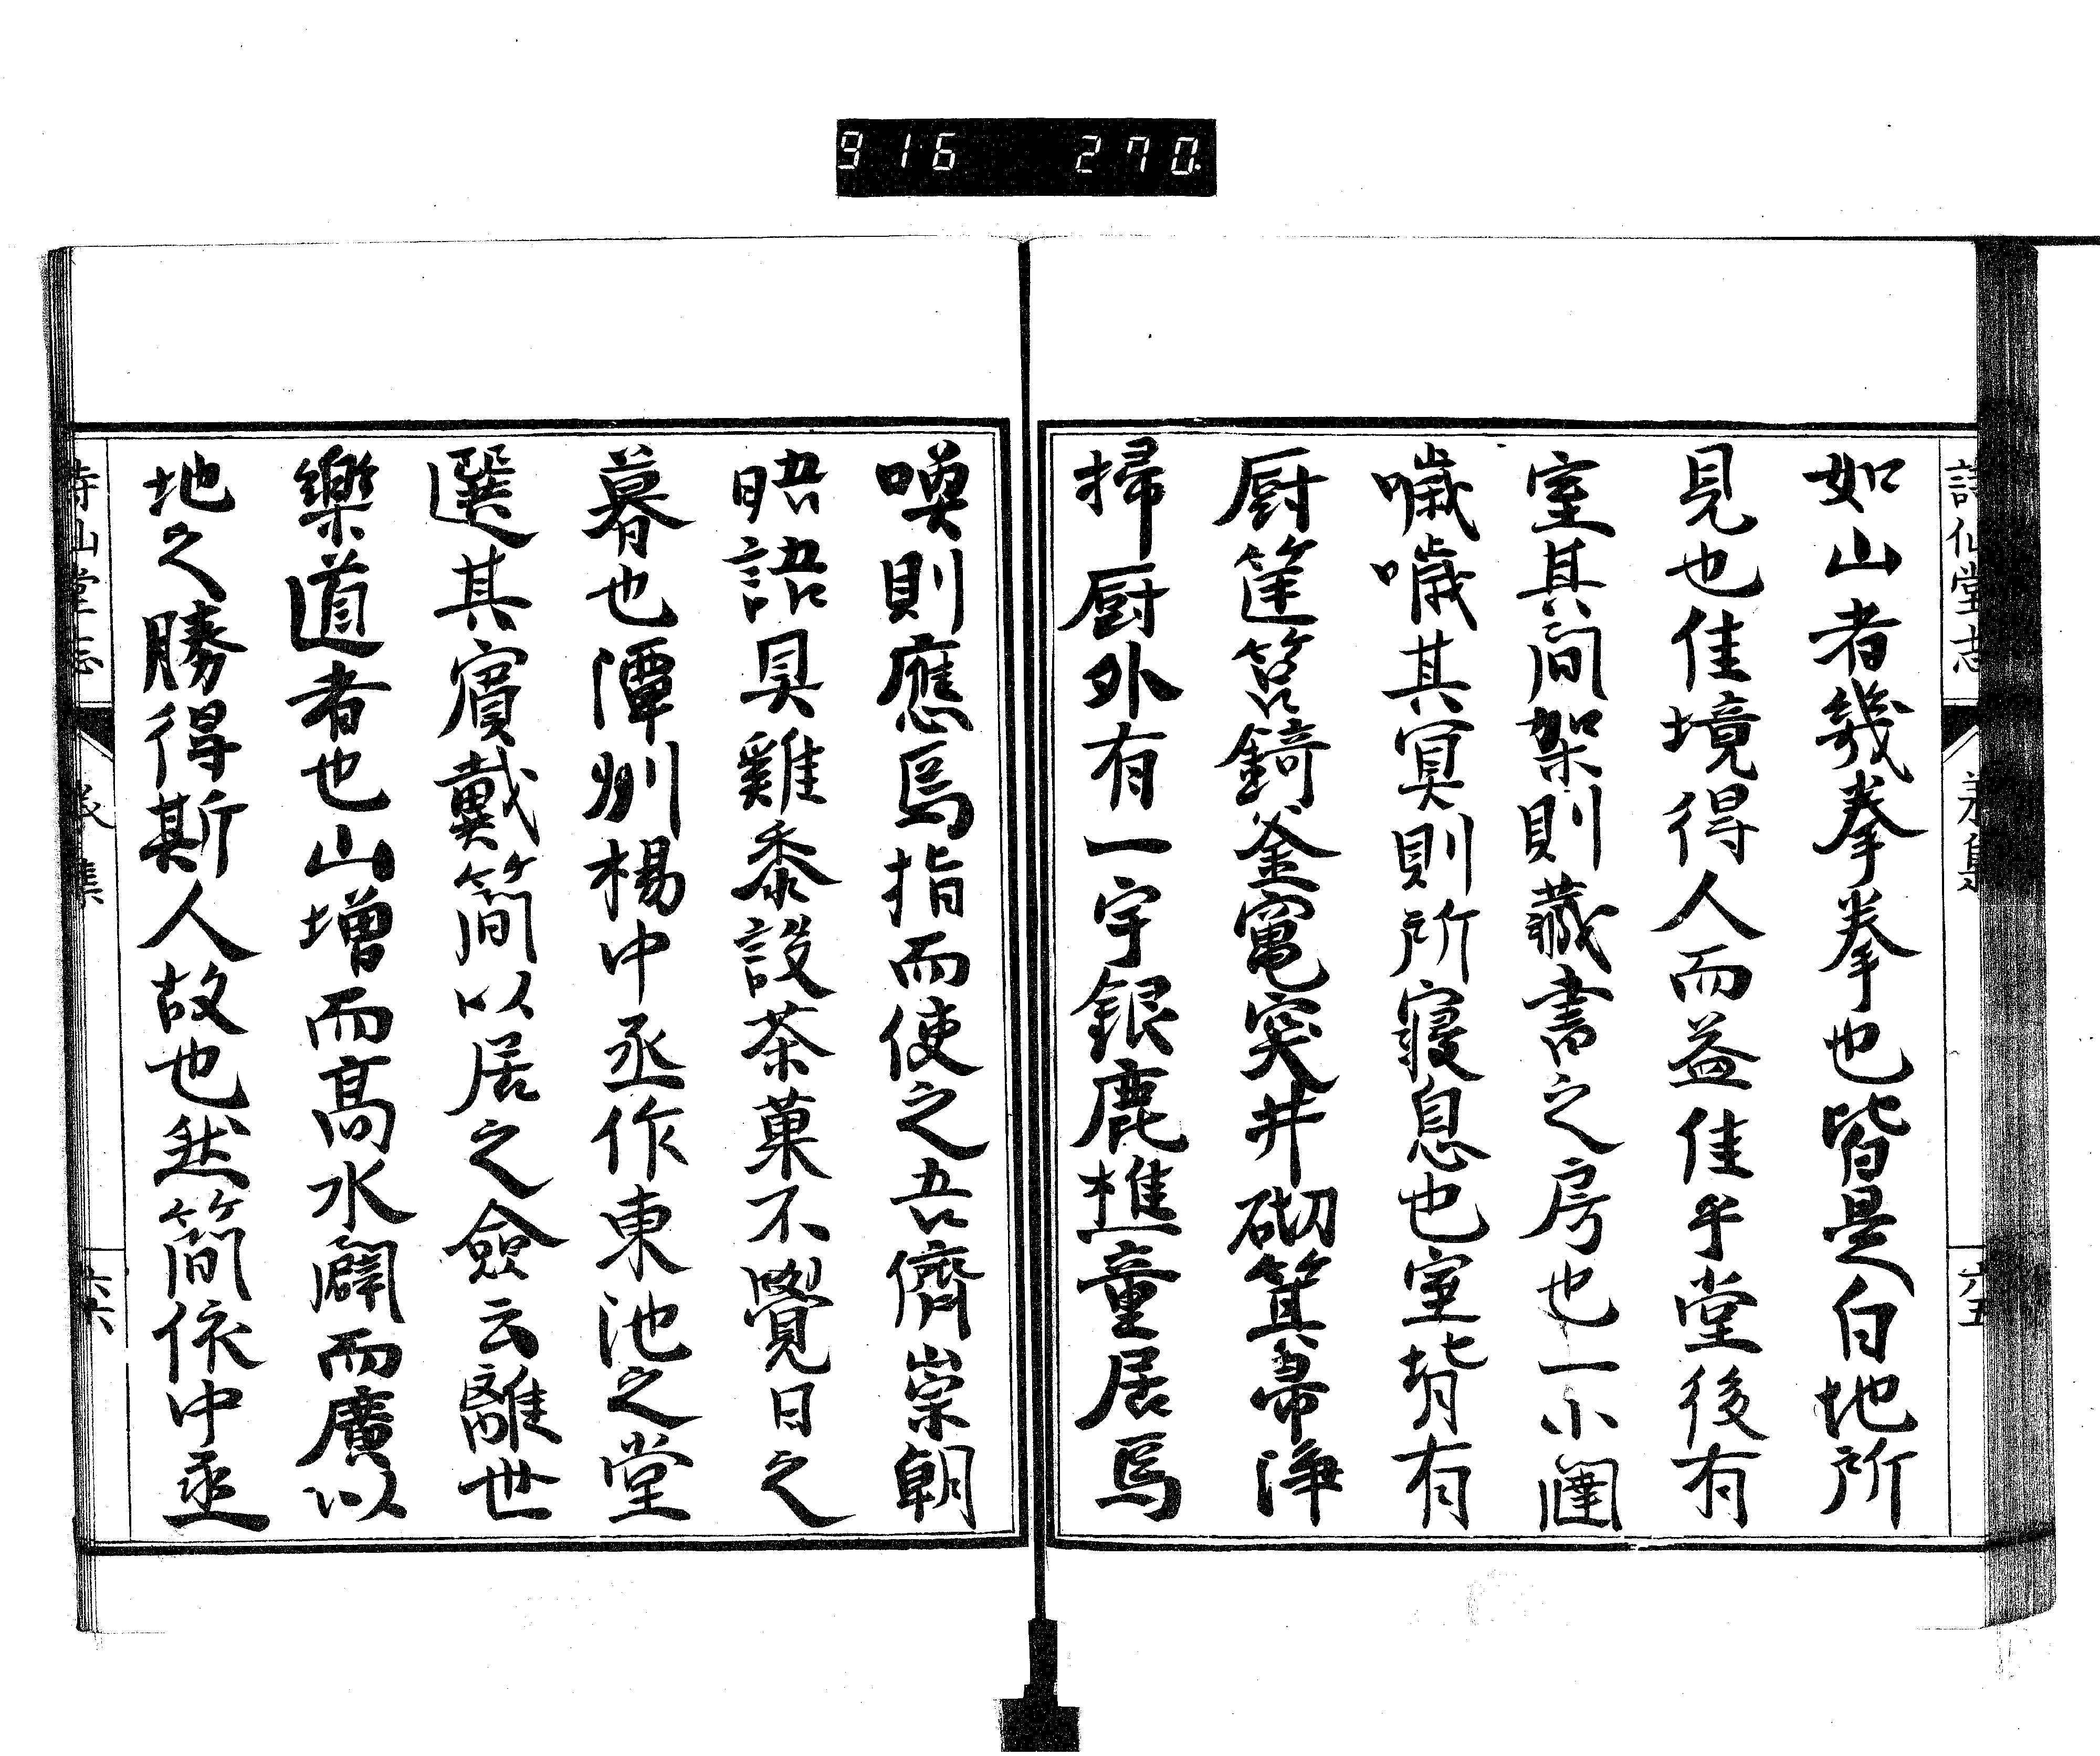 916 270.
詩仙堂志
六五
如山者幾拳拳也皆是白地所
見也佳境得人而益佳乎堂後有
室其間架則藏書之房也一小闈
噦噦其冥則所寢息也室背有
厨筐筥錡釜竃突井砌箕帚淨
掃厨外有一宇銀鹿樵童居焉
喚則應焉指而使之吾儕崇朝
晤語具雞黍設茶菓不覺日之
暮也潭州楊中丞作東池之堂
選其賓戴簡以居之僉云離世
樂道者也山增而高水闢而廣以
地之勝得斯人故也然簡依中丞
詩仙堂志
六六